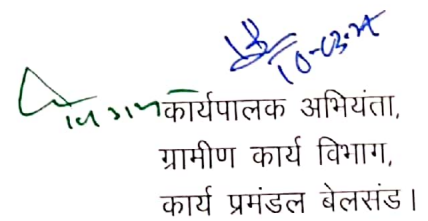 10-03-25
कार्यपालक अभियंता,
ग्रामीण कार्य विभाग,
कार्य प्रमंडल बेलसंड।